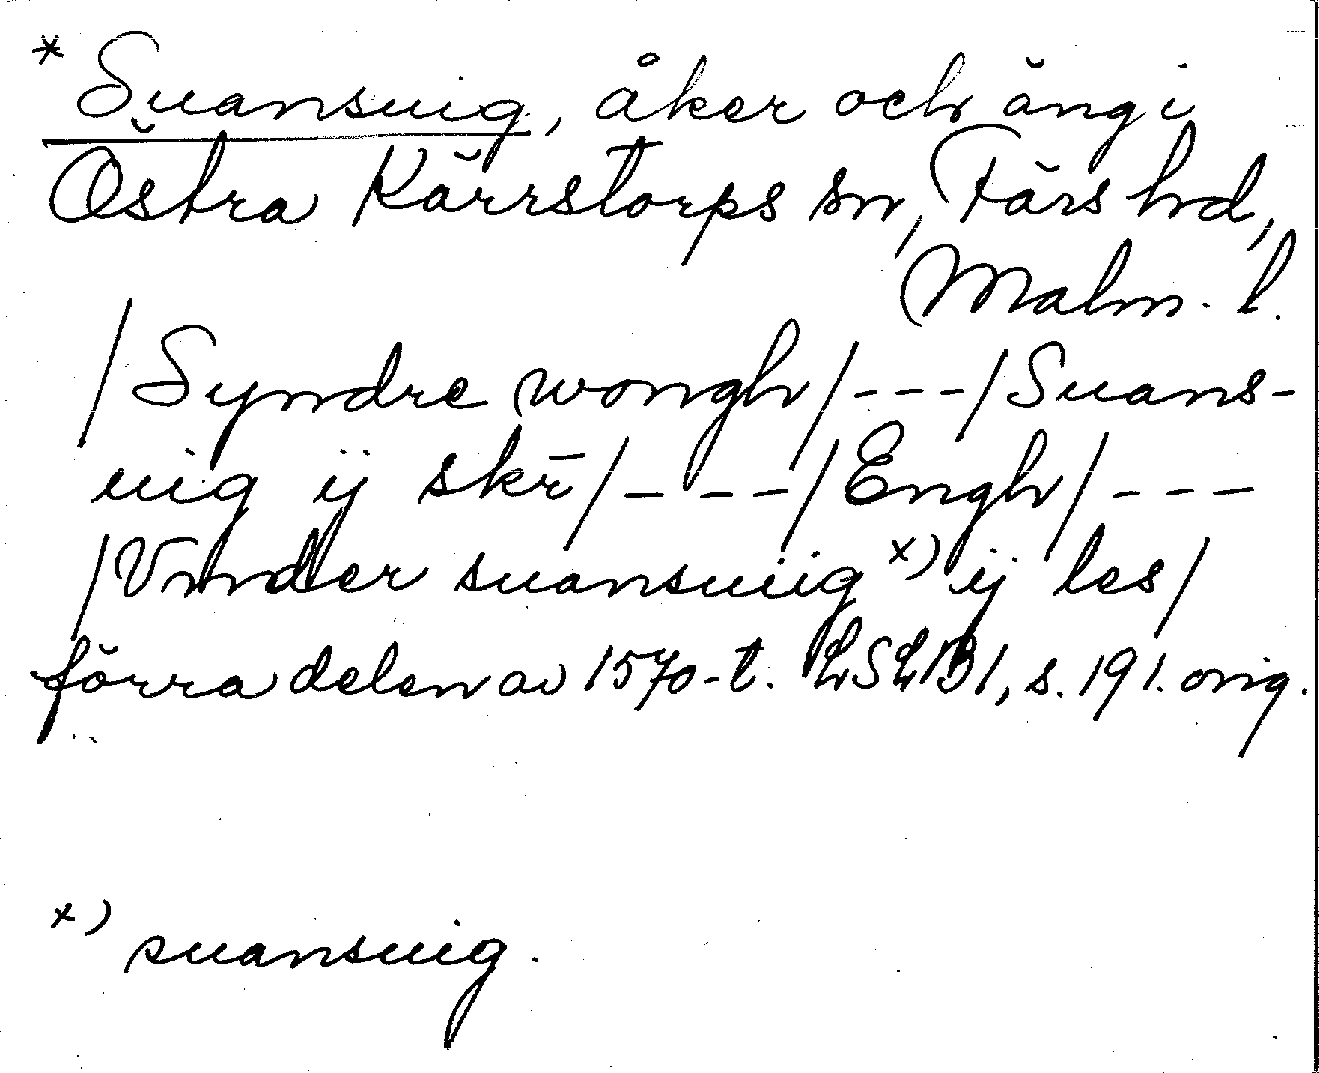 * Suansuig, åker och äng i
Östra Kärrstorps sn, Färs hd,
Malm. l.
/Syndre wongh/---/Suans-
uig ij skr̄/---/Engh/---
/Vnnder suansuiig x) ij les/
förra delen av 1570-t. LSLB1, s. 191. orig.
x) suansuig.